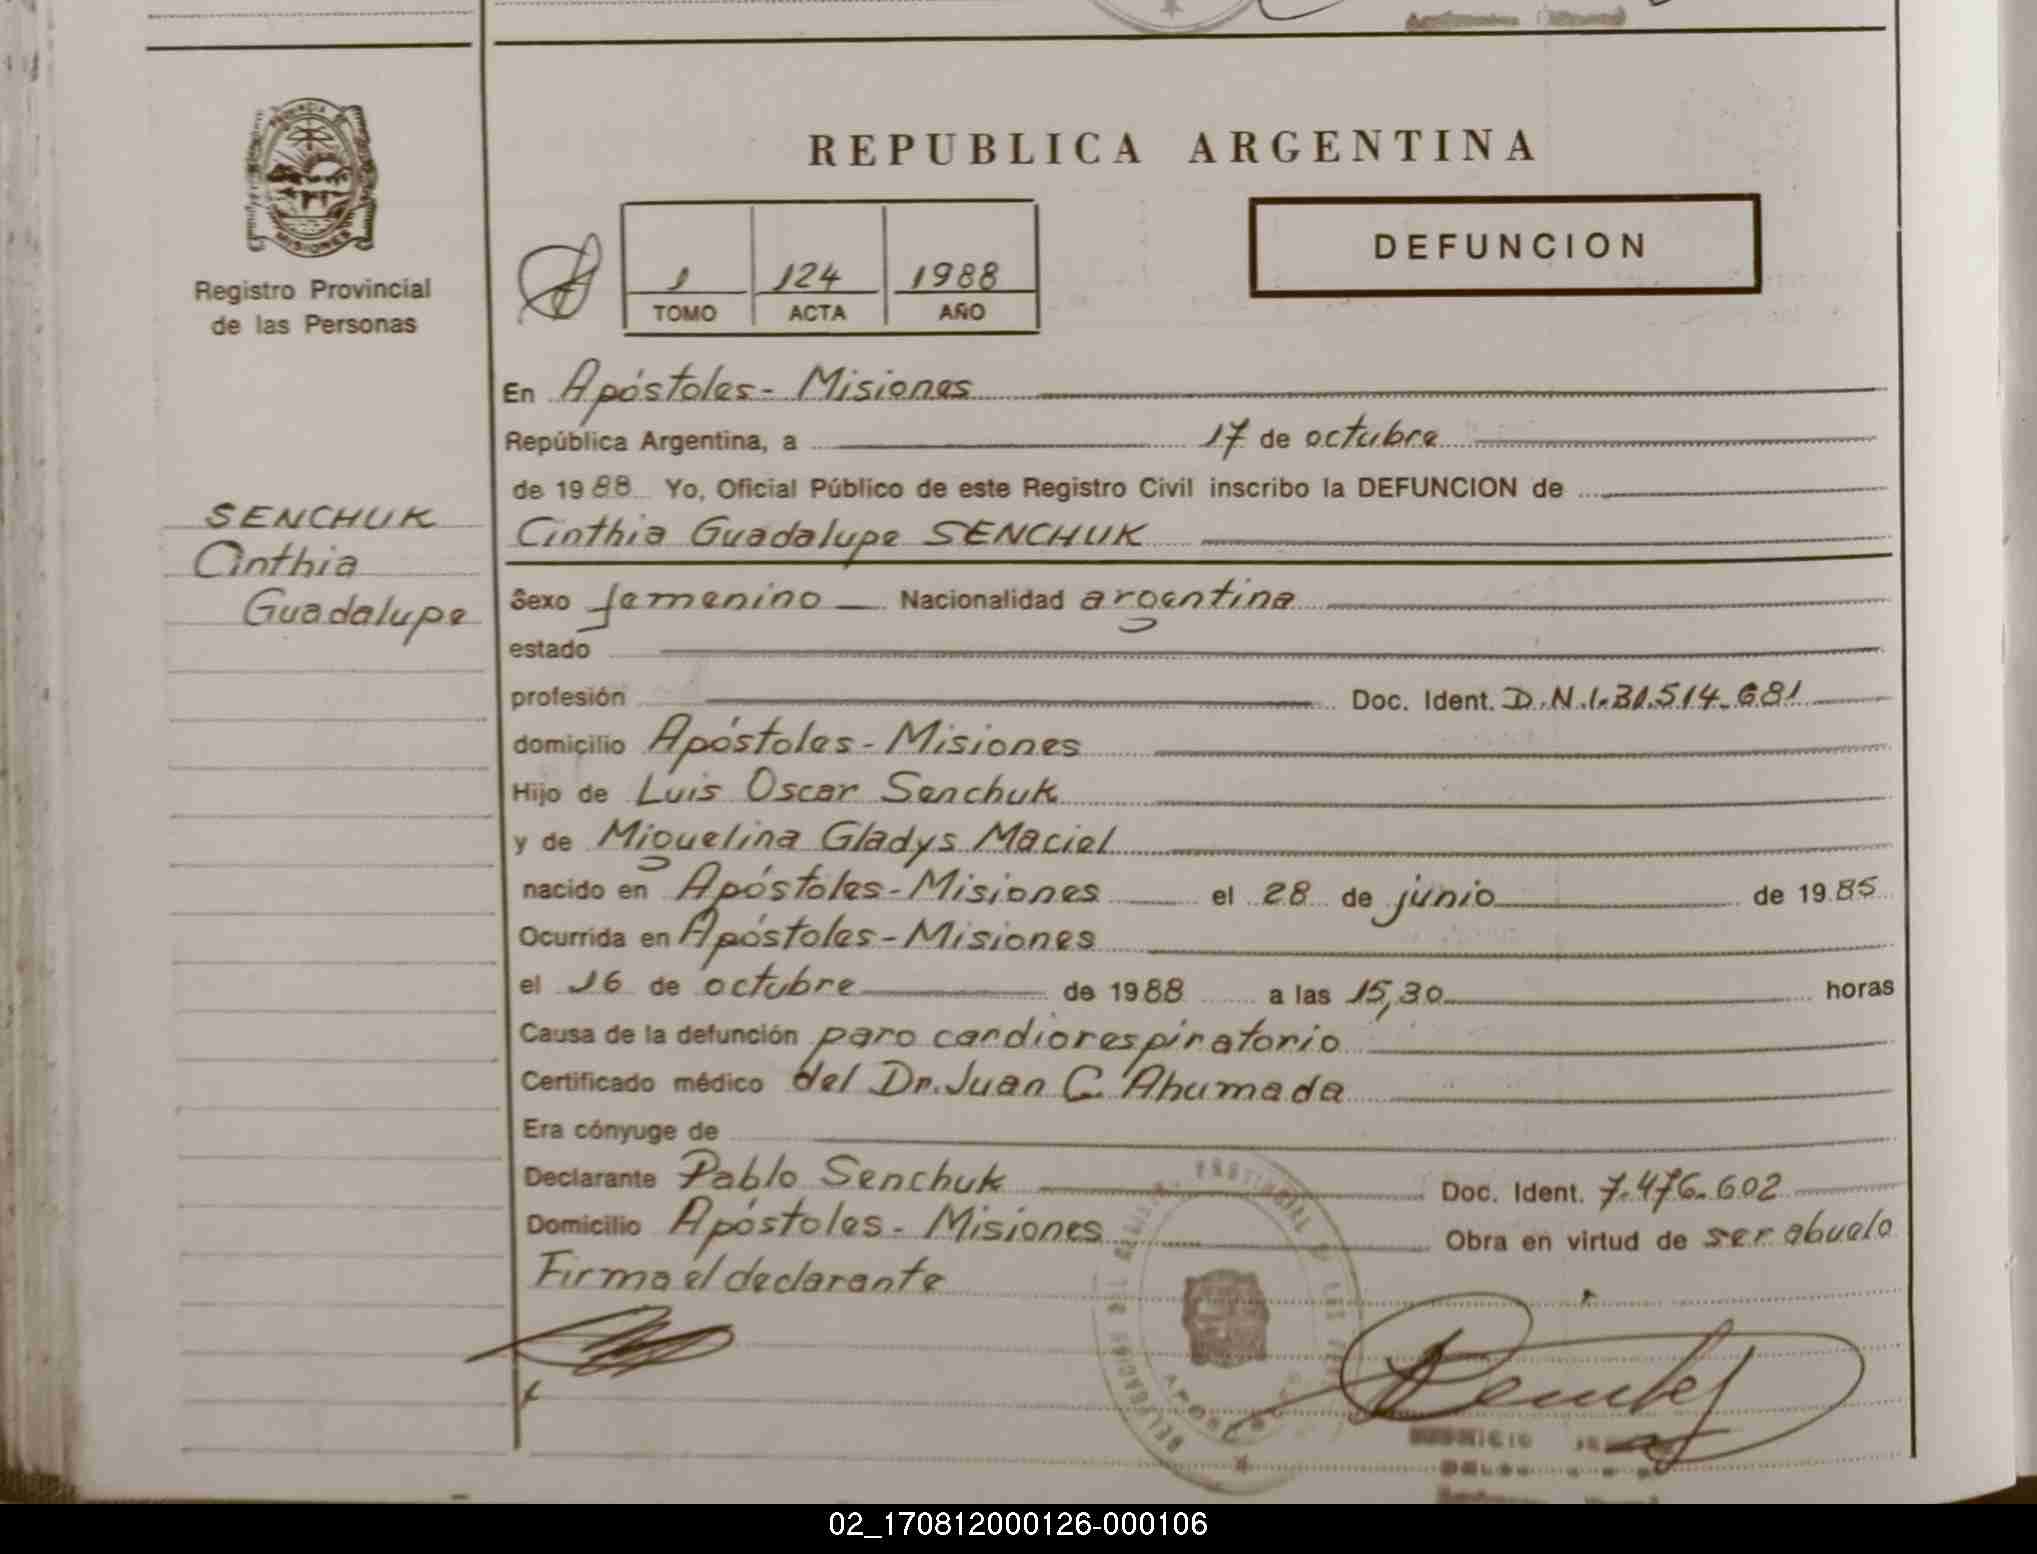 REPUBLICA ARGENTINA
PROVINCIA
MISIONES
Registro Provincial
de las Personas
DEFUNCION
1 124 1988
TOMO ACTA AÑO
En Apóstoles - Misiones
República Argentina, a 17 de octubre
de 1988 Yo, Oficial Público de este Registro Civil inscribo la DEFUNCION de
SENCHUK
Cinthia
Guadalupe
Cinthia Guadalupe SENCHUK
Sexo femenino Nacionalidad argentina
estado
profesión Doc. Ident. D.N.I.31.514.681
domicilio Apóstoles - Misiones
Hijo de Luis Oscar Senchuk
y de Miguelina Gladys Maciel
nacido en Apóstoles - Misiones el 28 de junio de 1985
Ocurrida en Apóstoles - Misiones
el 16 de octubre de 1988 a las 15,30 horas
Causa de la defunción paro cardiorespiratorio
Certificado médico del Dr. Juan C. Ahumada
Era cónyuge de
Declarante Pablo Senchuk Doc. Ident. 7.476.602
Domicilio Apóstoles - Misiones Obra en virtud de ser abuelo
Firma el declarante
02_170812000126-000106